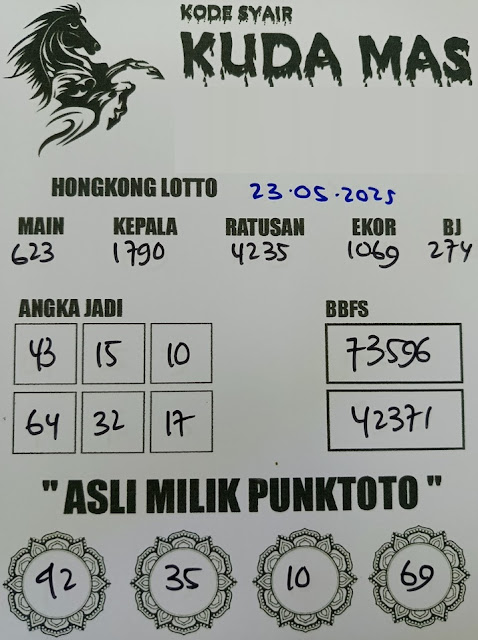 KODE SYAIR
KUDA MAS
HONGKONG LOTTO 23.05.2025
MAIN KEPALA RATUSAN EKOR BJ
623 1790 4235 1069 274
ANGKA JADI BBFS
43 15 10 73596
64 32 17 42371
" ASLI MILIK PUNKTOTO "
42 35 10 69